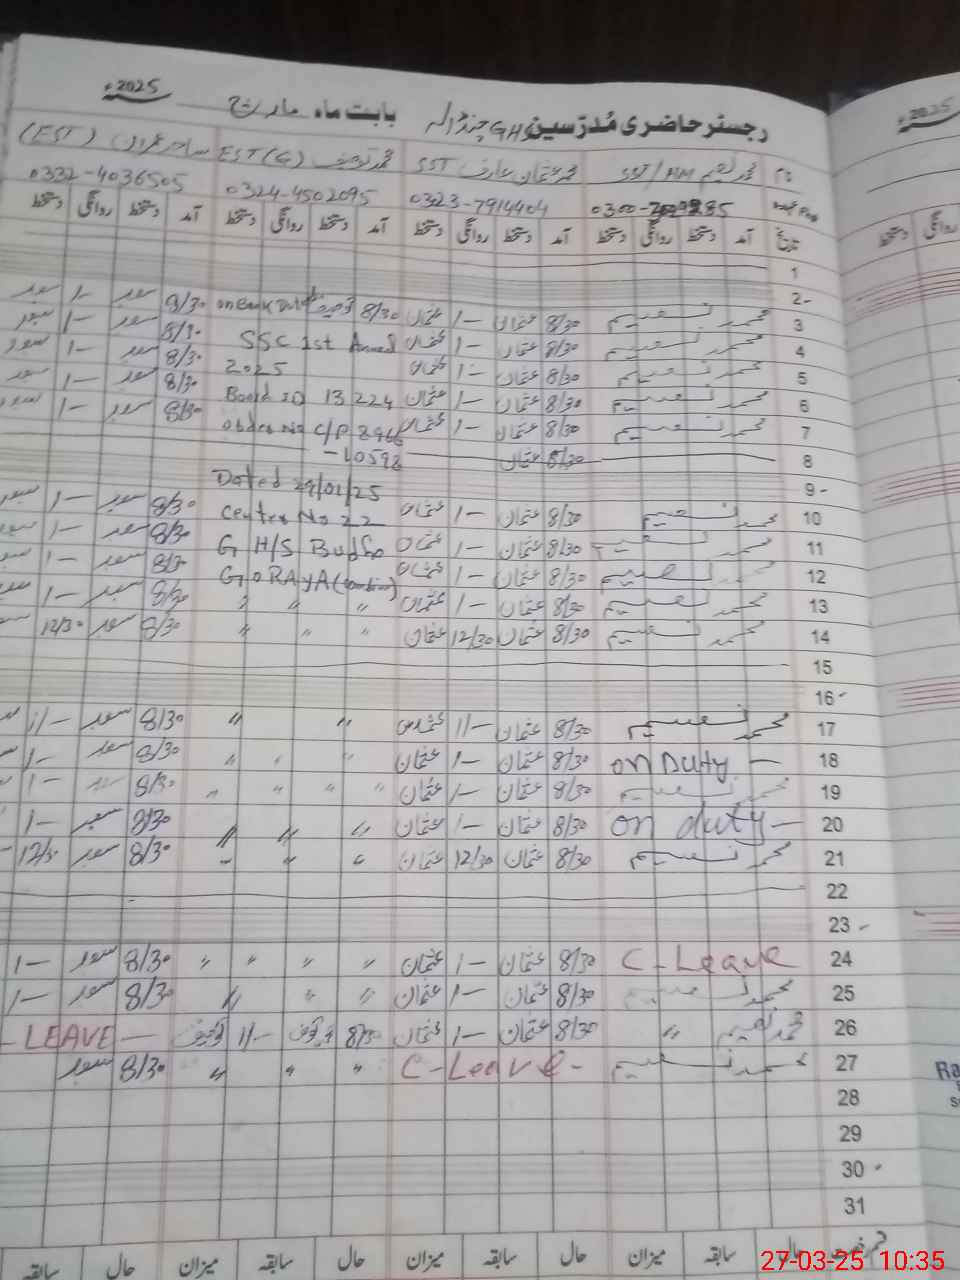 رجسٹر حاضری مُدرّسین GHS جنڈالہ بابت ماہ مارچ 2025ء
2025
نام محمد نعیم SST/MM محمد عثمان عارف SST محمد توصیف EST (G) (EST)
0323-7914404 0324-4502095 0332-4036505
تاریخ آمد دستخط روانگی دستخط آمد دستخط روانگی دستخط آمد دستخط روانگی دستخط آمد دستخط روانگی دستخط
دستخط روانگی
1
2
3 محمد نعیم 8/30 عثمان 1/- عثمان 8/30 توصیف 8/30 سعد 1/- سعد
4 محمد نعیم 8/30 عثمان 1/- عثمان SSC 1st Annual 8/30 سعد 1/- سعد
5 محمد نعیم 8/30 عثمان 1/- عثمان 2025 8/30 سعد 1/- سعد
6 محمد نعیم 8/30 عثمان 1/- عثمان Board ID 13224 8/30 سعد 1/- سعد
7 محمد نعیم 8/30 عثمان 1/- عثمان No C/P 8966 8/30 سعد 1/- سعد
8 عثمان 8/30 -10598
9 Dated 29/01/25
10 محمد نعیم 8/30 عثمان 1/- عثمان Center No 22 8/30 سعد 1/- سعد
11 محمد نعیم 8/30 عثمان 1/- عثمان G H/S Budho 8/30 سعد 1/- سعد
12 محمد نعیم 8/30 عثمان 1/- عثمان GoRAyA 8/30 سعد 1/- سعد
13 محمد نعیم 8/30 عثمان 1/- عثمان " " " 8/30 سعد 1/-
14 محمد نعیم 8/30 عثمان 12/30 عثمان " " " 8/30 سعد 12/30
15
16
17 محمد نعیم 8/30 عثمان 1/- عثمان " " 8/30 سعد 1/-
18 on Duty 8/30 عثمان 1/- عثمان " " " 8/30 سعد 1/-
19 محمد نعیم 8/30 عثمان 1/- عثمان " " " " 8/30 سعد 1/-
20 on duty 8/30 عثمان 1/- عثمان " " " 8/30 سعد 1/-
21 محمد نعیم 8/30 عثمان 12/30 عثمان " " " 8/30 سعد 12/30
22
23
24 C-Leave 8/30 عثمان 1/- عثمان " " " " 8/30 سعد 1/-
25 محمد نعیم 8/30 عثمان 1/- عثمان " " " 8/30 سعد 1/-
26 محمد نعیم " 8/30 عثمان 1/- عثمان 8/30 توصیف 1/- توصیف - LEAVE -
27 محمد نعیم C-Leave " " " 8/30 سعد
28
29
30
31
حال سابقہ میزان حال سابقہ میزان حال سابقہ میزان حال سابقہ
27-03-25 10:35